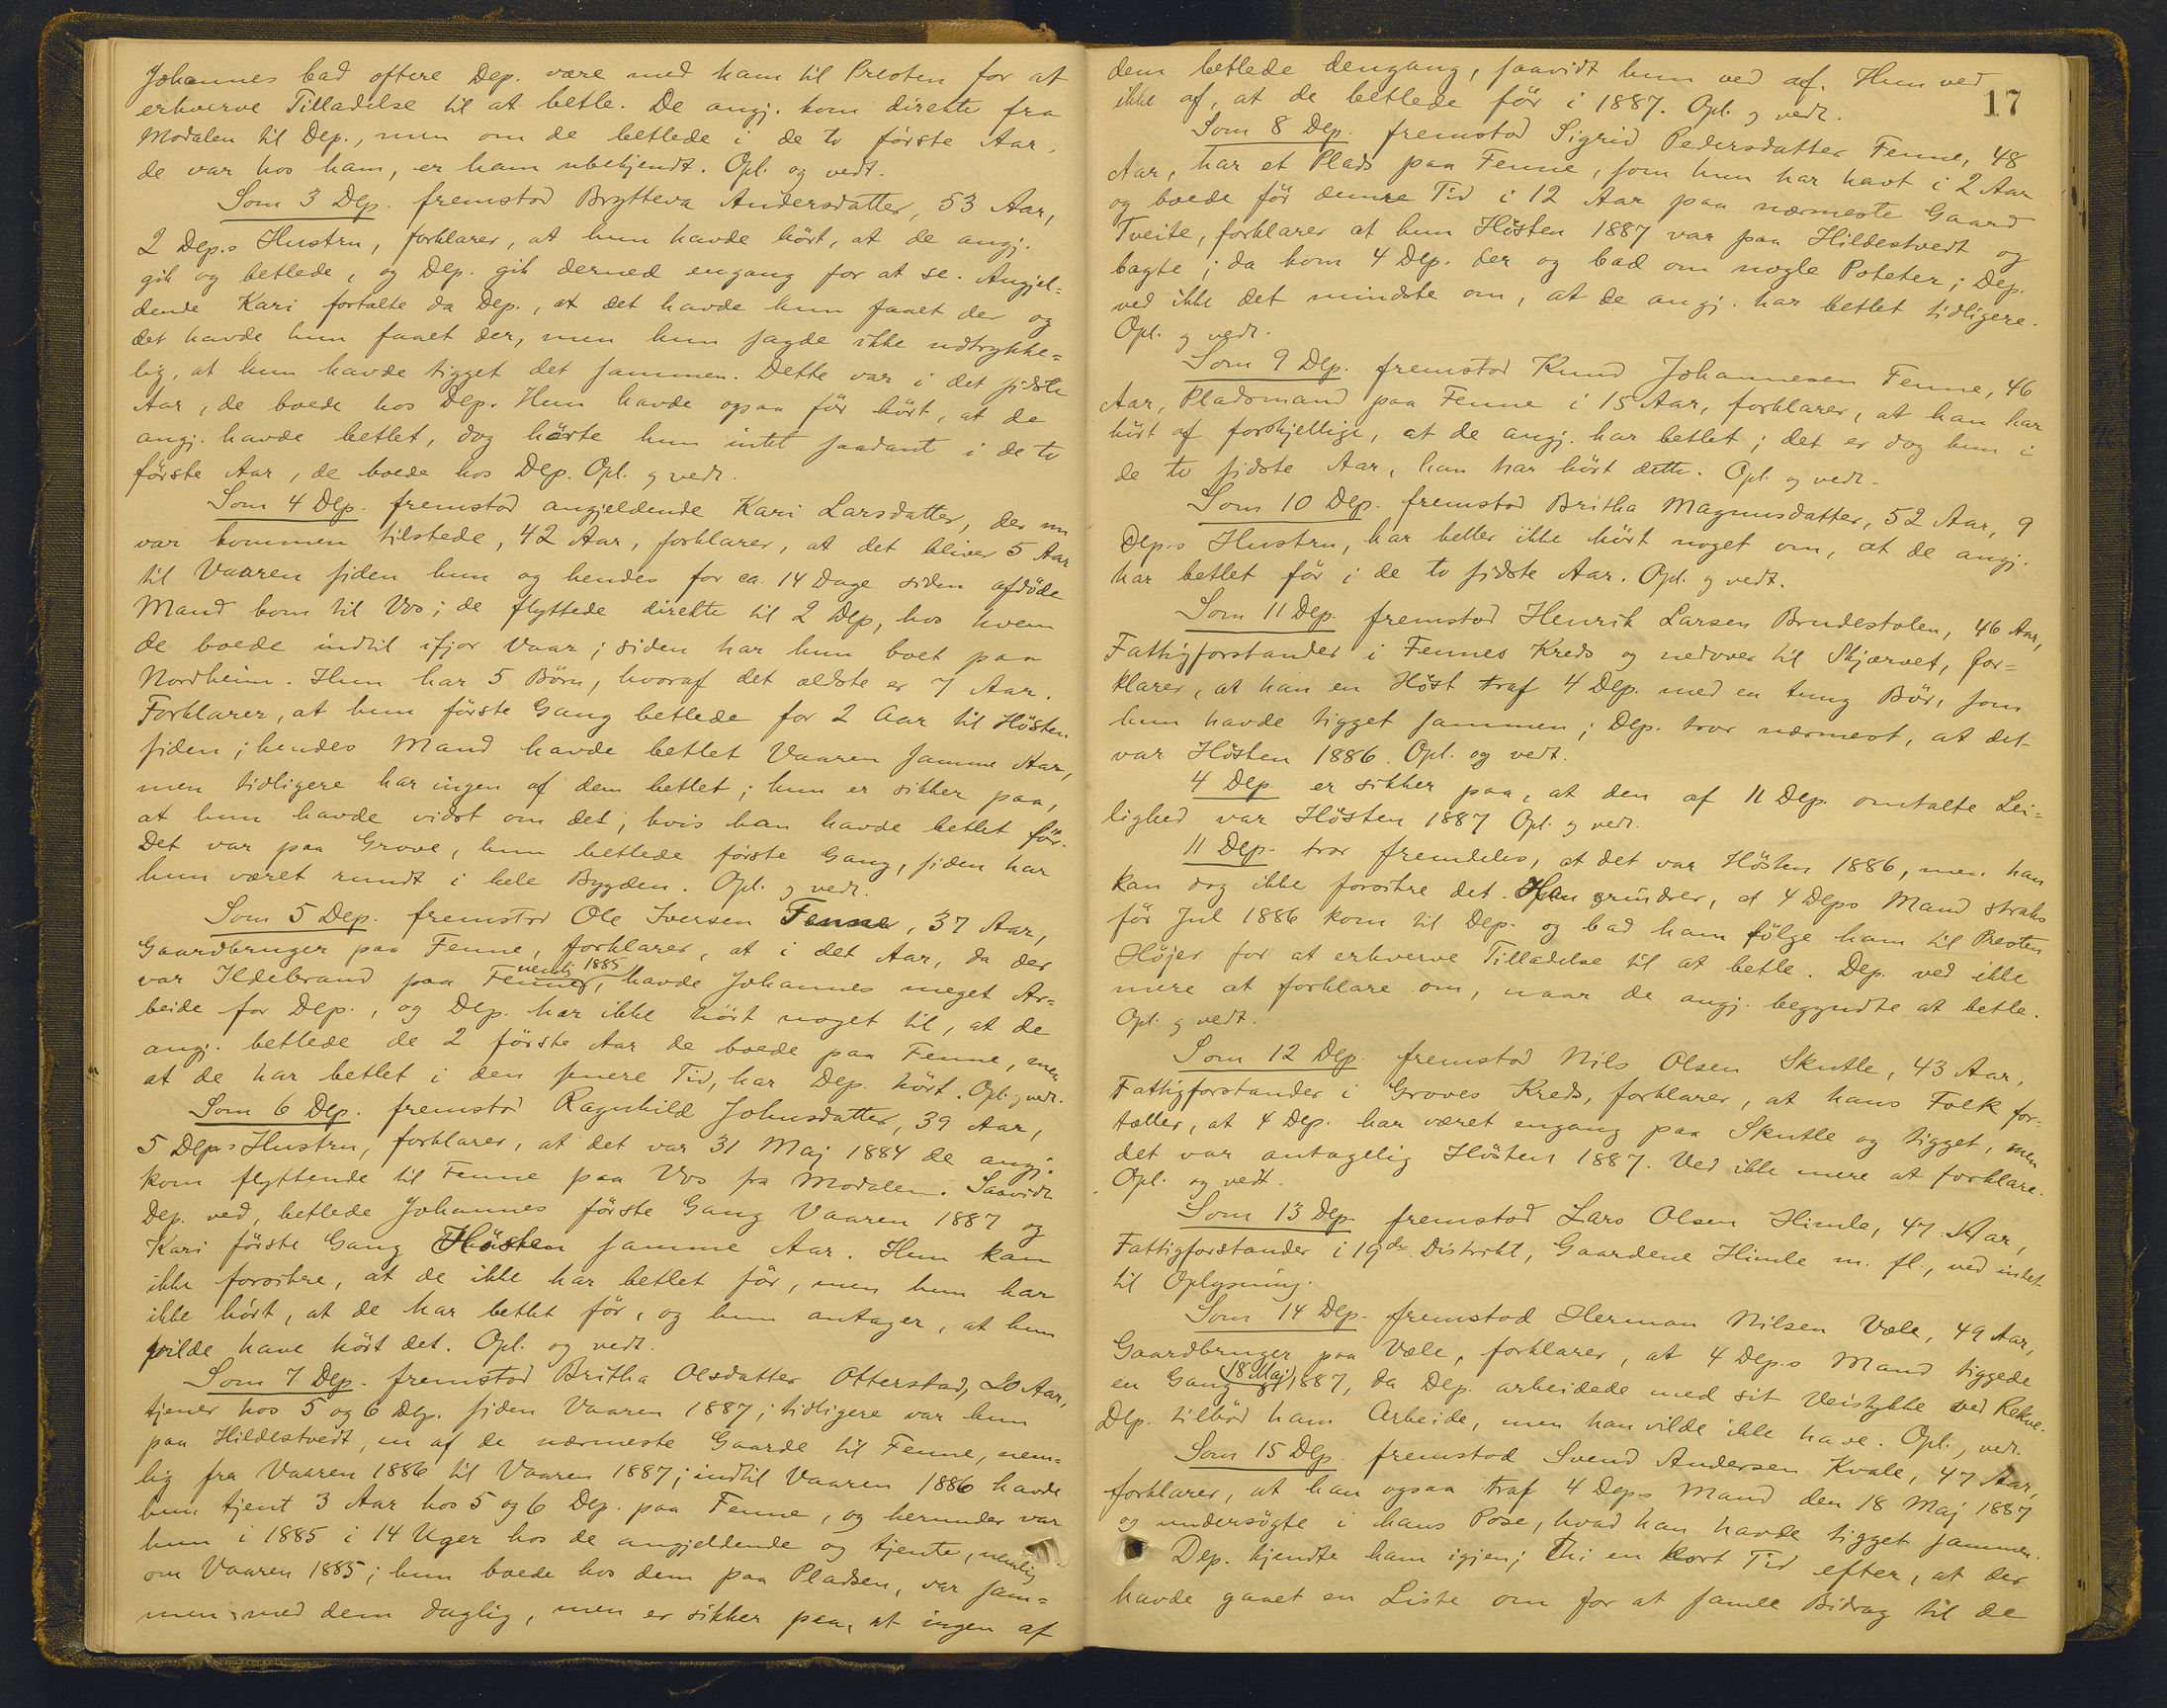 Johannes bad oftere Dep. være med ham til Presten for at
erhverve Tilladelse til at betle. De angj. kom direkte fra
Modalen til Dep., men om de betlede i de to første Aar,
de var hos ham, er ham ubekjendt. Opl. og vedt.
Som 3 Dep. fremstod Brytteva Andersdatter, 53 Aar,
2 Dep.s Hustru, forklarer, at hun havde hørt, at de angj.
gik og betlede, og Dep. gik derned engang for at se. Angjel=
dende Kari fortalte da Dep., at det havde hun faaet der og
det havde hun faaet der, men hun sagde ikke udtrykke=
lig, at hun havde tigget det sammen. Dette var i det sidste
Aar, de boede hos Dep. Hun havde ogsaa før hørt, at de
angj. havde betlet, dog hørte hun intet saadant i de to
første Aar, de boede hos Dep. Opl. og vedt.
Som 4 Dep. fremstod angjeldende Kari Larsdatter, der nu
var kommen tilstede, 42 Aar, forklarer, at det bliver 5 Aar
til Vaaren siden hun og hendes for ca. 14 Dage siden afdøde
Mand kom til Vos; de flyttede direkte til 2 Dep, hos hvem
de boede indtil ifjor Vaar; siden har hun boet paa
Nordheim. Hun har 5 Børn, hvoraf det ældste er 7 Aar.
Forklarer, at hun første Gang betlede for 2 Aar til Høsten
siden; hendes Mand havde betlet Vaaren samme Aar,
men tidligere har ingen af dem betlet; hun er sikker paa,
at hun havde vidst om det, hvis han havde betlet før.
Det var paa Grove, hun betlede første Gang, siden har
hun været rundt i hele Bygden. Opl. og vedt.
Som 5 Dep. fremstod Ole Iversen Fenne, 37 Aar,
Gaardbruger paa Fenne, forklarer, at i det Aar, da der
var Ildebrand paa Fenne, nemlig 1885, havde Johannes meget Ar=
beide for Dep., og Dep. har ikke hørt noget til, at de
angj. betlede de 2 første Aar de boede paa Fenne, men
at de har betlet i den senere Tid, har Dep. hørt. Opl. og vedt.
Som 6 Dep. fremstod Ragnhild Johnsdatter, 39 Aar,
5 Deps Hustru, forklarer, at det var 31 Maj 1884 de angj.
kom flyttende til Fenne paa Vos fra Modalen. Saavidt
Dep. ved, betlede Johannes første Gang Vaaren 1887 og
Kari første Gang Høsten samme Aar. Hun kan
ikke forsikre, at de ikke har betlet før, men hun har
ikke hørt, at de har betlet før, og hun antager, at hun
vilde have hørt det. Opl. og vedt.
Som 7 Dep. fremstod Britha Olsdatter Otterstad, 20 Aar,
tjener hos 5 og 6 Dep. siden Vaaren 1887; tidligere var hun
paa Hildestvedt, en af de nærmeste Gaarde til Fenne, nem=
lig fra Vaaren 1886 til Vaaren 1887; indtil Vaaren 1886 havde
hun tjent 3 Aar hos 5 og 6 Dep. paa Fenne, og herunder var
hun i 1885 i 14 Uger hos de angjeldende og tjente, nemlig
om Vaaren 1885; hun boede hos dem paa Pladsen, var sam=
men med dem daglig, men er sikker paa, at ingen af
17
dem betlede dengang, saavidt hun ved af. Hun ved
ikke af, at de betlede før i 1887. Opl. og vedt.
Som 8 Dep. fremstod Sigrid Pedersdatter Fenne, 48
Aar, har et Plads paa Fenne, som hun har havt i 2 Aar
og boede før denne Tid i 12 Aar paa nærmeste Gaard
Tveite, forklarer at hun Høsten 1887 var paa Hildestvedt og
bagte; da kom 4 Dep. der og bad om nogle Poteter; Dep.
ved ikke det mindste om, at de angj. har betlet tidligere.
Opl. og vedt.
Som 9 Dep. fremstod Knud Johannesen Fenne, 46
Aar, Pladsmand paa Fenne i 15 Aar, forklarer, at han har
hørt af forskjellige, at de angj. har betlet; det er dog kun i
de to sidste Aar, han har hørt dette. Opl. og vedt.
Som 10 Dep. fremstod Britha Magnusdatter, 52 Aar, 9
Dep.s Hustru, har heller ikke hørt noget om, at de angj.
har betlet før i de to sidste Aar. Opl. og vedt.
Som 11 Dep. fremstod Henrik Larsen Brudestolen, 46 Aar,
Fattigforstander i Fennes Kreds og nedover til Skjærvet, for=
klarer, at han en Høst traf 4 Dep. med en tung Bør, som
hun havde tigget sammen; Dep. tror nærmest, at det
var Høsten 1886. Opl. og vedt.
4 Dep. er sikker paa, at den af 11 Dep. omtalte Lei=
lighed var Høsten 1887 Opl. og vedt.
11 Dep. tror fremdeles, at det var Høsten 1886, men han
kan dog ikke forsikre det. Han erindrer, at 4 Deps Mand straks
før Jul 1886 kom til Dep. og bad ham følge ham til Presten
Højer for at erhverve Tilladelse til at betle. Dep. ved ikke
mere at forklare om, naar de angj. begyndte at betle.
Opl. og vedt.
Som 12 Dep. fremstod Nils Olsen Skutle, 43 Aar,
Fattigforstander i Groves Kreds, forklarer, at hans Folk for=
tæller, at 4 Dep. har været engang paa Skutle og tigget, men
det var antagelig Høsten 1887. Ved ikke mere at forklare.
Opl. og vedt.
Som 13 Dep. fremstod Lars Olsen Himle, 47 Aar,
Fattigforstander i 19de Distrikt, Gaardene Himle m. fl., ved intet
til Oplysning.
Som 14 Dep. fremstod Herman Nilsen Væle, 49 Aar,
Gaardbruger paa Væle, forklarer, at 4 Dep.s Mand tiggede
en Gang 18 Maj 1887, da Dep. arbeidede med sit Veistykke ved Rekve.
Dep. tilbød ham Arbeide, men han vilde ikke have. Opl. og vedt.
Som 15 Dep. fremstod Svend Andersen Kvale, 47 Aar,
forklarer, at han ogsaa traf 4 Deps Mand den 18 Maj 1887
og undersøgte i hans Pose, hvad han havde tigget sammen.
Dep. kjendte ham igjen; Thi en kort Tid efter, at der
havde gaaet en Liste om for at samle Bidrag til de